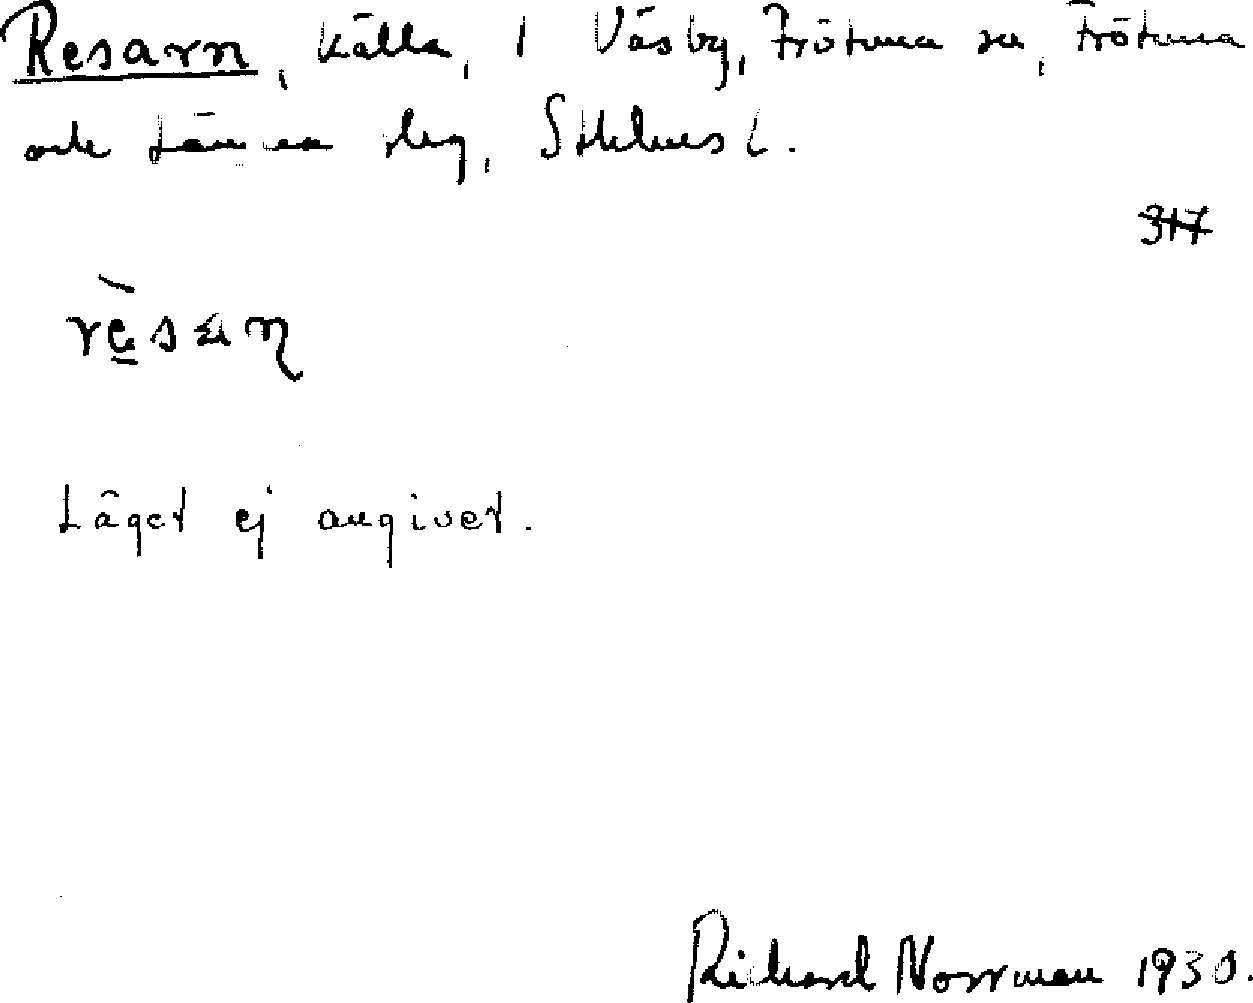 Resarn, källa, i Väsby, Frötuna sn, Frötuna
och Länna skg, Sthlms l.
317
Läget ej angivet.
Richard Norrman 1930.